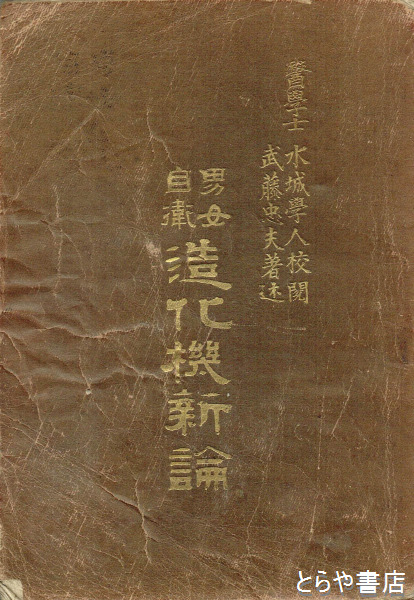 醫學士 水城學人校閲
武藤忠夫著述
男女
自衞
造化機新論
とらや書店